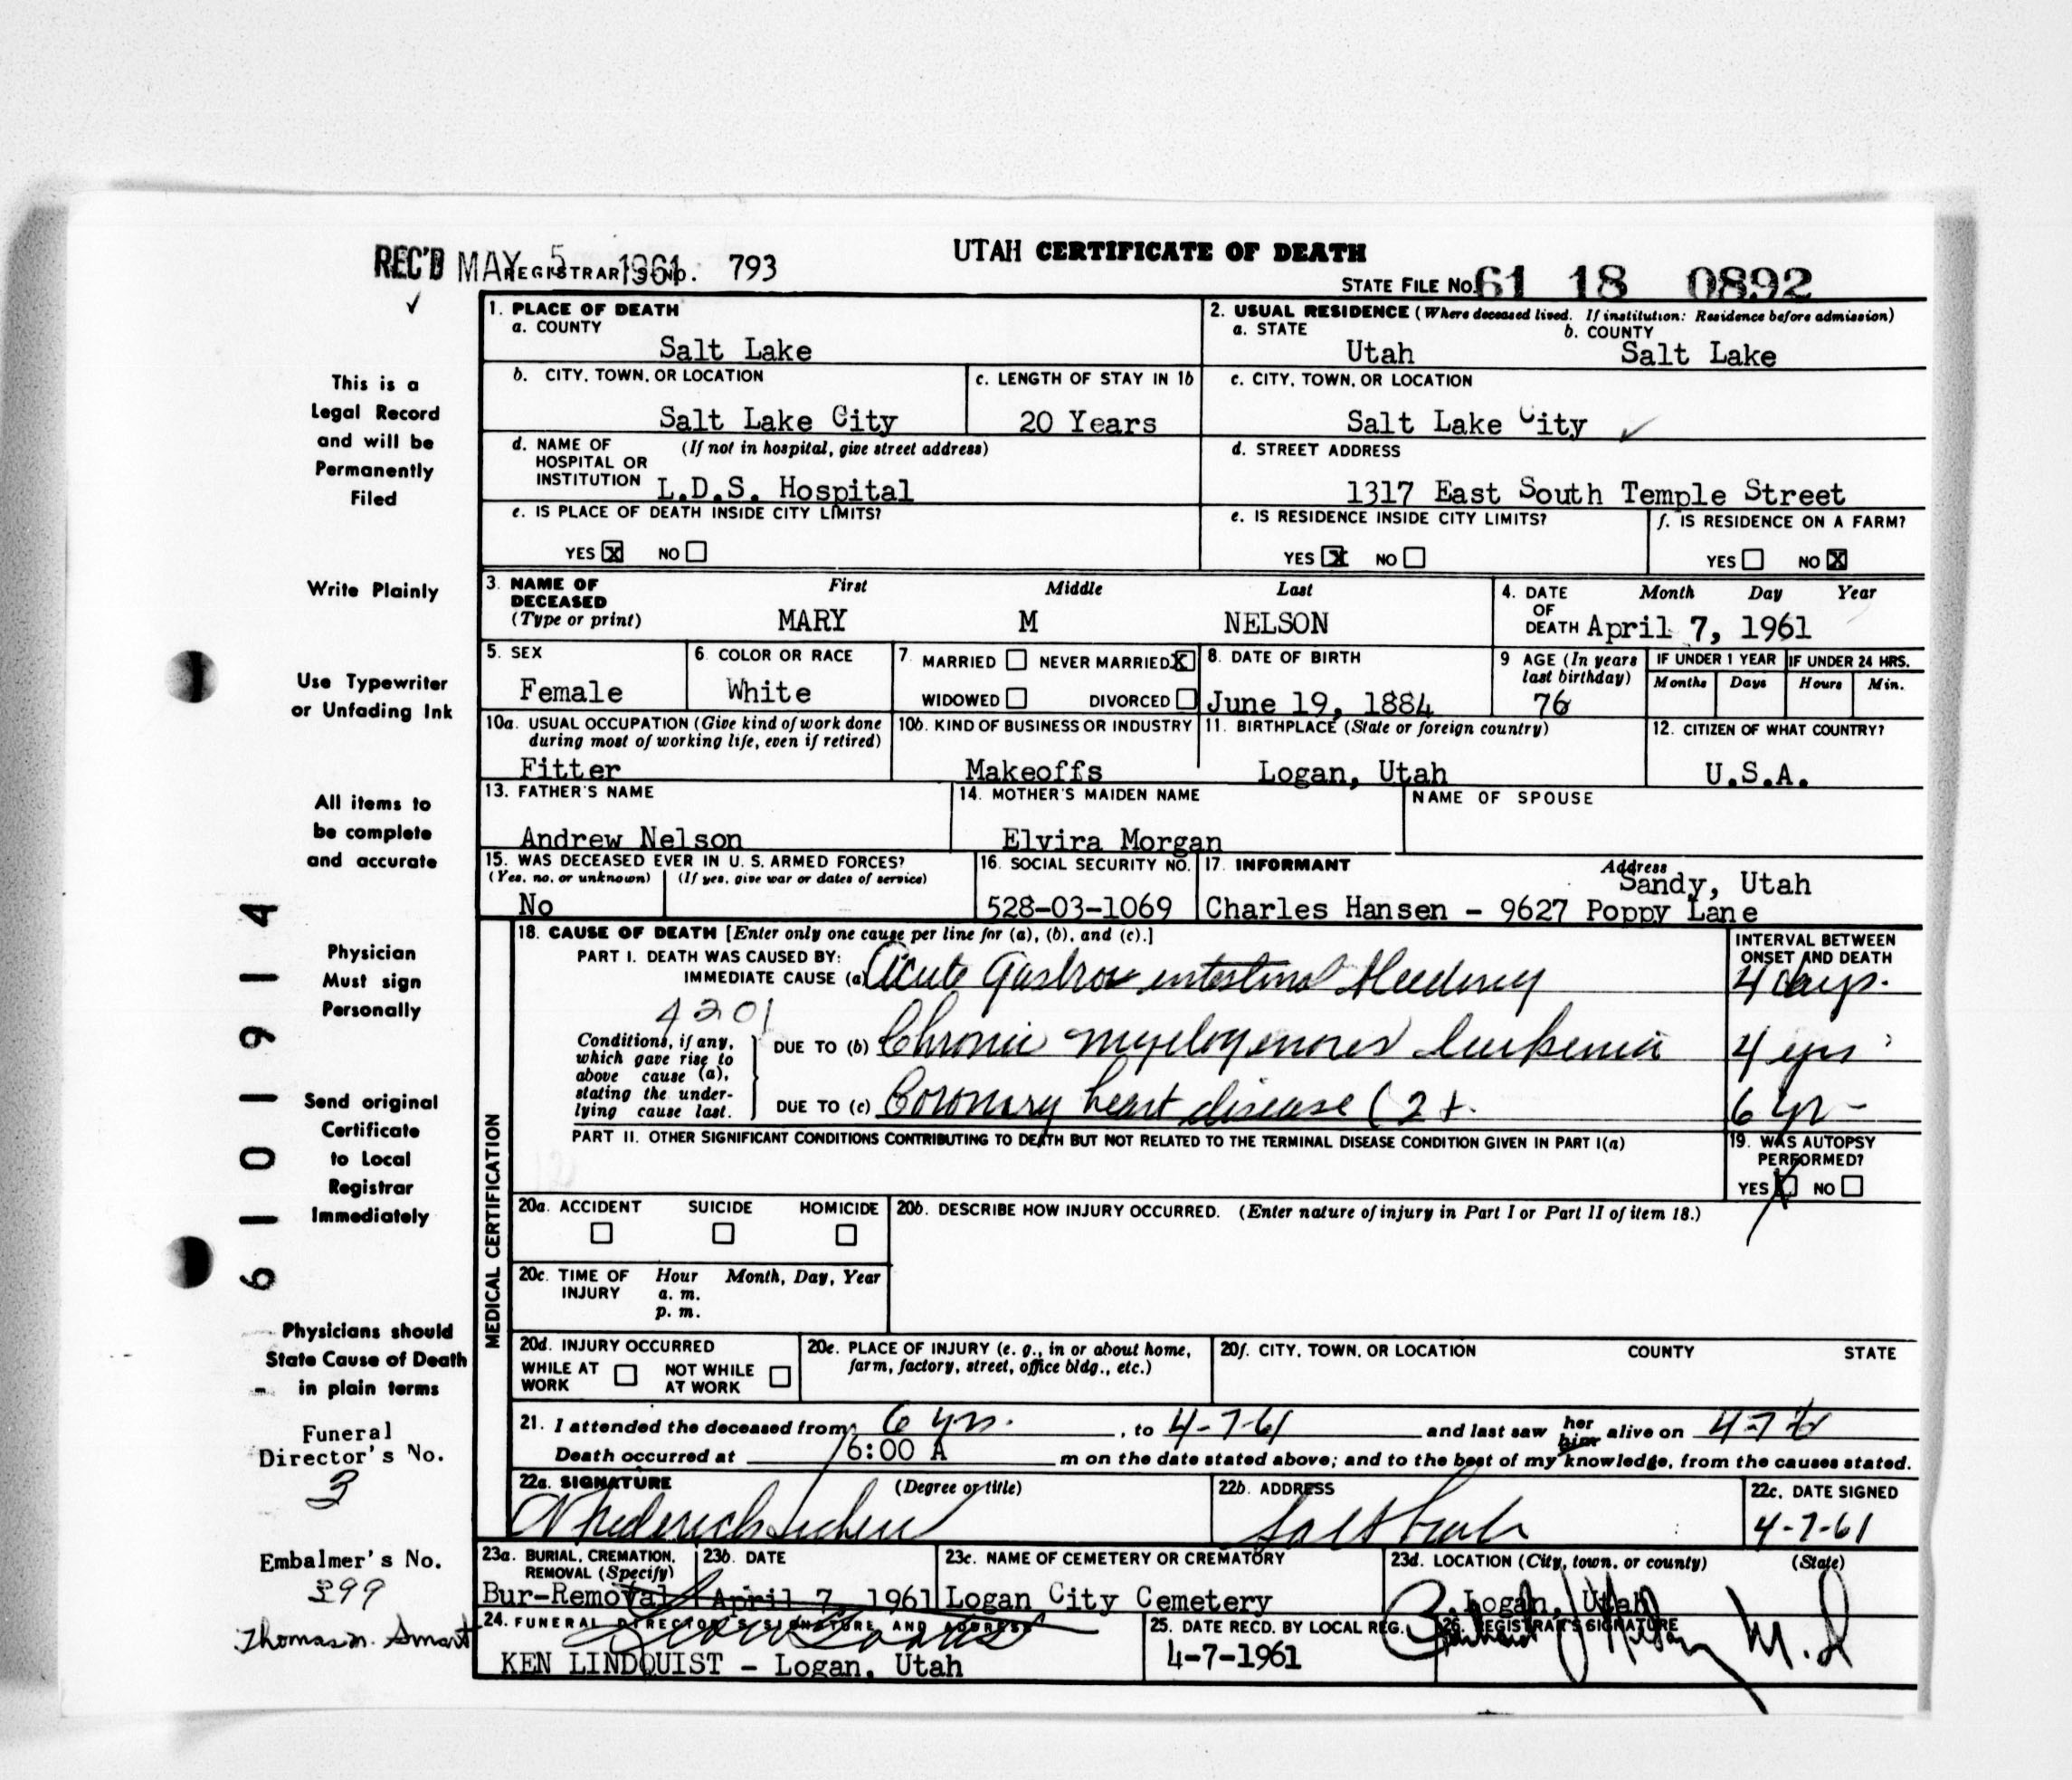 UTAH CERTIFICATE OF DEATH
REC'D MAY 5 1961 REGISTRAR'S NO. 793
STATE FILE NO. 61 18 0892
1. PLACE OF DEATH
a. COUNTY
Salt Lake
2. USUAL RESIDENCE (Where deceased lived. If institution: Residence before admission)
a. STATE b. COUNTY
Utah Salt Lake
b. CITY, TOWN, OR LOCATION
Salt Lake City
c. LENGTH OF STAY IN 1b
20 Years
c. CITY, TOWN, OR LOCATION
Salt Lake City
d. NAME OF HOSPITAL OR INSTITUTION (If not in hospital, give street address)
L.D.S. Hospital
d. STREET ADDRESS
1317 East South Temple Street
e. IS PLACE OF DEATH INSIDE CITY LIMITS?
YES X NO
e. IS RESIDENCE INSIDE CITY LIMITS?
YES X NO
f. IS RESIDENCE ON A FARM?
YES NO X
3. NAME OF DECEASED (Type or print)
First Middle Last
MARY M NELSON
4. DATE OF DEATH Month Day Year
April 7, 1961
5. SEX
Female
6. COLOR OR RACE
White
7. MARRIED NEVER MARRIED X
WIDOWED DIVORCED
8. DATE OF BIRTH
June 19, 1884
9 AGE (In years last birthday)
76
IF UNDER 1 YEAR
Months Days
IF UNDER 24 HRS.
Hours Min.
10a. USUAL OCCUPATION (Give kind of work done during most of working life, even if retired)
Fitter
10b. KIND OF BUSINESS OR INDUSTRY
Makeoffs
11. BIRTHPLACE (State or foreign country)
Logan, Utah
12. CITIZEN OF WHAT COUNTRY?
U.S.A.
13. FATHER'S NAME
Andrew Nelson
14. MOTHER'S MAIDEN NAME
Elvira Morgan
NAME OF SPOUSE
15. WAS DECEASED EVER IN U. S. ARMED FORCES?
(Yes, no, or unknown) (If yes, give war or dates of service)
No
16. SOCIAL SECURITY NO.
528-03-1069
17. INFORMANT Address
Sandy, Utah
Charles Hansen - 9627 Poppy Lane
MEDICAL CERTIFICATION
18. CAUSE OF DEATH [Enter only one cause per line for (a), (b), and (c).]
PART I. DEATH WAS CAUSED BY:
IMMEDIATE CAUSE (a) Acute Gastro intestinal bleeding
INTERVAL BETWEEN ONSET AND DEATH
4 days.
4201
Conditions, if any, which gave rise to above cause (a), stating the underlying cause last.
DUE TO (b) Chronic myelogenous leukemia
4 yrs
DUE TO (c) Coronary heart disease (2+.
6 yr
PART II. OTHER SIGNIFICANT CONDITIONS CONTRIBUTING TO DEATH BUT NOT RELATED TO THE TERMINAL DISEASE CONDITION GIVEN IN PART I(a)
19. WAS AUTOPSY PERFORMED?
YES X NO
20a. ACCIDENT SUICIDE HOMICIDE
20b. DESCRIBE HOW INJURY OCCURRED. (Enter nature of injury in Part I or Part II of item 18.)
20c. TIME OF INJURY Hour Month, Day, Year
a. m.
p. m.
20d. INJURY OCCURRED
WHILE AT WORK NOT WHILE AT WORK
20e. PLACE OF INJURY (e. g., in or about home, farm, factory, street, office bldg., etc.)
20f. CITY, TOWN, OR LOCATION COUNTY STATE
21. I attended the deceased from 6 yrs. , to 4-7-61 and last saw her him alive on 4-7-61
Death occurred at 6:00 A m on the date stated above; and to the best of my knowledge, from the causes stated.
22a. SIGNATURE (Degree or title)
22b. ADDRESS
Salt Lake
22c. DATE SIGNED
4-7-61
23a. BURIAL, CREMATION, REMOVAL (Specify)
Bur-Removal
23b. DATE
April 7, 1961
23c. NAME OF CEMETERY OR CREMATORY
Logan City Cemetery
23d. LOCATION (City, town, or county) (State)
Logan, Utah
24. FUNERAL DIRECTOR'S SIGNATURE, AND ADDRESS
KEN LINDQUIST - Logan, Utah
25. DATE RECD. BY LOCAL REG.
4-7-1961
26. REGISTRAR'S SIGNATURE
M.D
This is a
Legal Record
and will be
Permanently
Filed
Write Plainly
Use Typewriter
or Unfading Ink
All items to
be complete
and accurate
Physician
Must sign
Personally
Send original
Certificate
to Local
Registrar
Immediately
Physicians should
State Cause of Death
in plain terms
Funeral
Director's No.
3
Embalmer's No.
399
Thomas N. Smart
6 1 0 1 9 1 4